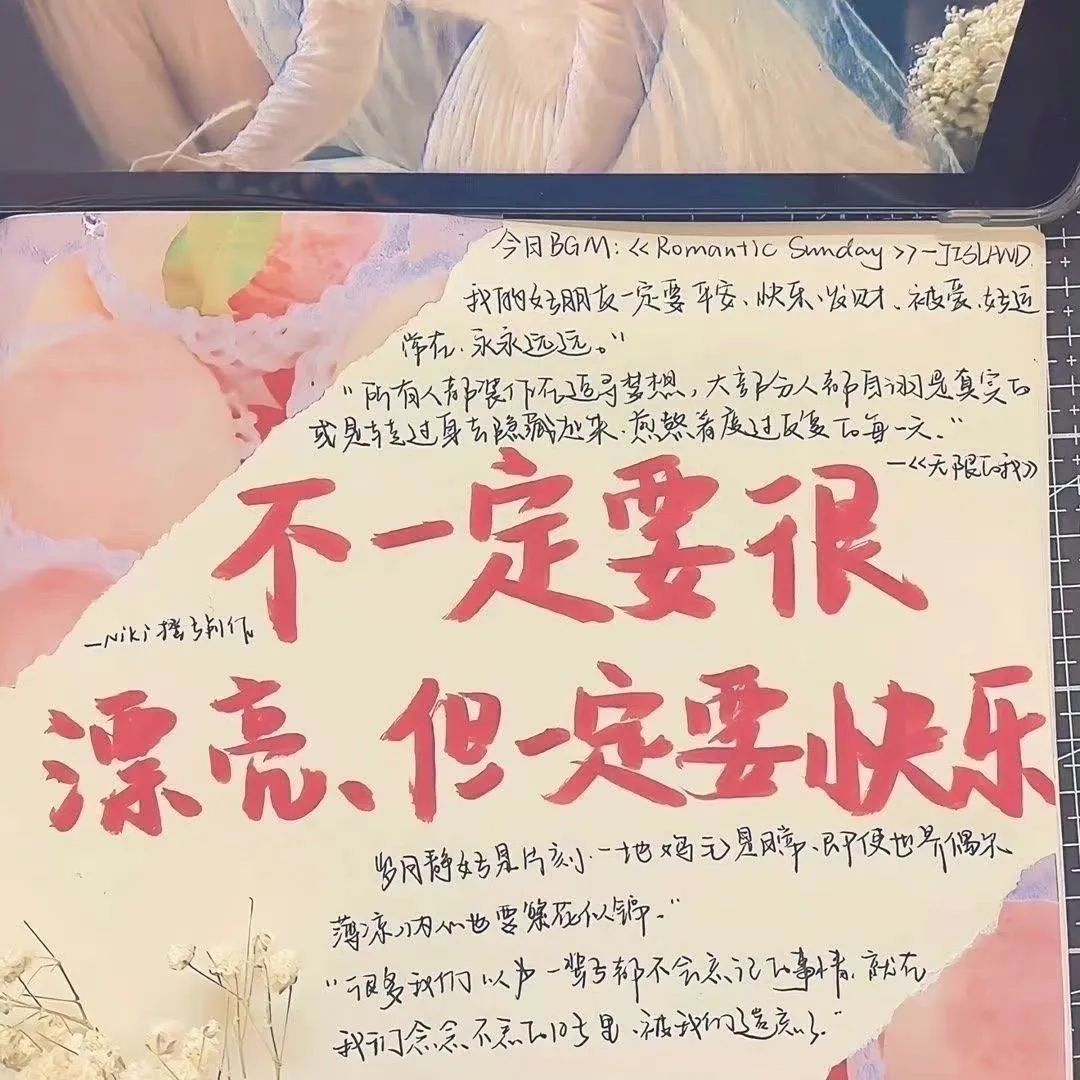 今日BGM:《Romantic Sunday》-J ISLAND
我的好朋友一定要平安、快乐、发财、被爱、好运
常在、永永远远。"
"所有人都装作在追寻梦想,大部分人都自诩是真实的
或是转过身去隐藏起来、煎熬着度过反复的每一天。"
—《无限的我》
不一定要很
—Niki
漂亮、但一定要快乐
岁月静好是片刻、一地鸡毛是日常、即便世界偶尔
薄凉、内心也要繁花似锦。"
"很多我们以为一辈子都不会忘记的事情,就在
我们念念不忘的日子里、被我们遗忘了。"